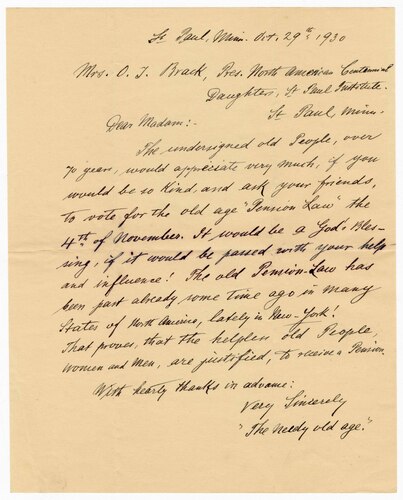 St. Paul, Minn. Oct. 29th, 1930
Mrs. O. J. Brack, Pres. North American Centennial
Daughters, St Paul Institute.
St Paul, Minn.
Dear Madam:-
The undersigned old People, over
70 years, would appreciate very much, if you
would be so kind, and ask your friends,
to vote for the old age "Pension Law" the
4th of November. It would be a God's Bles-
sing, if it would be passed with your help
and influence! The old Pension-Law has
been past already, some time ago in many
States of North America, lately in New-York!
That proves, that the helpless old People
Women and Men, are justified, to receive a Pension.
With hearty thanks in advance:
Very Sincerely
"The needy old age."